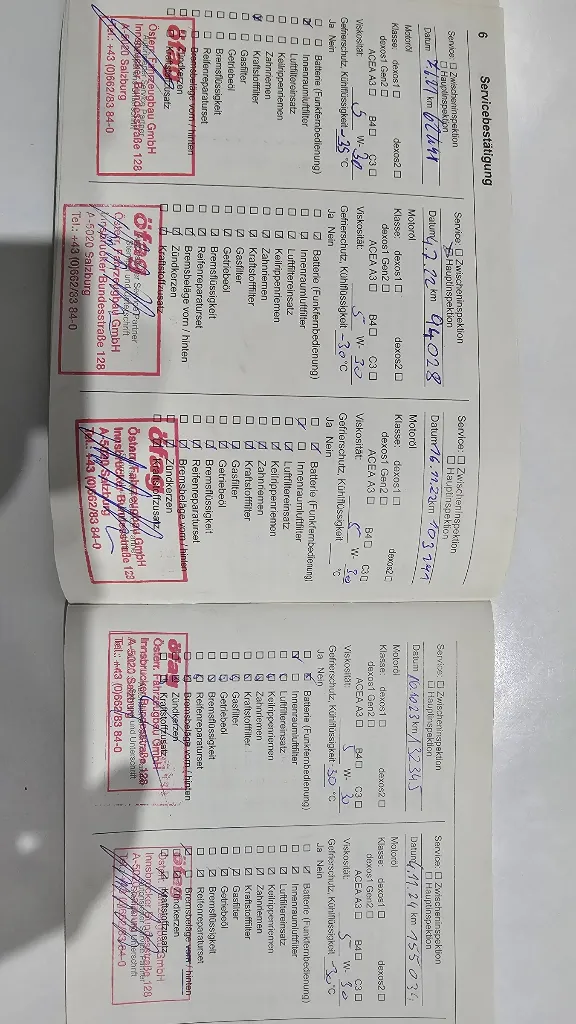 6 Servicebestätigung
Service: ☐ Zwischeninspektion
☐ Hauptinspektion
Datum km
Motoröl
Klasse: dexos1 ☐ dexos2 ☐
dexos1 Gen2 ☐
ACEA A3 ☐ B4 ☐ C3 ☐
Viskosität: 5 W- 30
Gefrierschutz, Kühlflüssigkeit -35 °C
Ja Nein
Batterie (Funkfernbedienung)
Innenraumluftfilter
Luftfiltereinsatz
Keilrippenriemen
Zahnriemen
Kraftstofffilter
Gasfilter
Getriebeöl
Bremsflüssigkeit
Reifenreparaturset
Bremsbeläge vorn / hinten
Zündkerzen
Kraftstoffzusatz
öfag
Österr. Fahrzeugbau GmbH
Innsbrucker Bundesstraße 128
A-5020 Salzburg
Tel.: +43 (0)662/83 84-0
Service: ☐ Zwischeninspektion
Hauptinspektion
Datum 4.7.22 km 94028
Motoröl
Klasse: dexos1 ☐ dexos2 ☐
dexos1 Gen2 ☐
ACEA A3 ☐ B4 ☐ C3 ☐
Viskosität: 5 W- 30
Gefrierschutz, Kühlflüssigkeit -30 °C
Ja Nein
Batterie (Funkfernbedienung)
Innenraumluftfilter
Luftfiltereinsatz
Keilrippenriemen
Zahnriemen
Kraftstofffilter
Gasfilter
Getriebeöl
Bremsflüssigkeit
Reifenreparaturset
Bremsbeläge vorn / hinten
Zündkerzen
Kraftstoffzusatz
öfag
Österr. Fahrzeugbau GmbH
Innsbrucker Bundesstraße 128
A-5020 Salzburg
Tel.: +43 (0)662/83 84-0
Service: ☐ Zwischeninspektion
☐ Hauptinspektion
Datum 16.11.22 km 103141
Motoröl
Klasse: dexos1 ☐ dexos2 ☐
dexos1 Gen2 ☐
ACEA A3 ☐ B4 ☐ C3 ☐
Viskosität: 5 W- 30
Gefrierschutz, Kühlflüssigkeit °C
Ja Nein
Batterie (Funkfernbedienung)
Innenraumluftfilter
Luftfiltereinsatz
Keilrippenriemen
Zahnriemen
Kraftstofffilter
Gasfilter
Getriebeöl
Bremsflüssigkeit
Reifenreparaturset
Bremsbeläge vorn / hinten
Zündkerzen
Kraftstoffzusatz
öfag
Österr. Fahrzeugbau GmbH
Innsbrucker Bundesstraße 128
A-5020 Salzburg
Tel.: +43 (0)662/83 84-0
Service: ☐ Zwischeninspektion
☐ Hauptinspektion
Datum km 132345
Motoröl
Klasse: dexos1 ☐ dexos2 ☐
dexos1 Gen2 ☐
ACEA A3 ☐ B4 ☐ C3 ☐
Viskosität: 5 W- 30
Gefrierschutz, Kühlflüssigkeit -30 °C
Ja Nein
Batterie (Funkfernbedienung)
Innenraumluftfilter
Luftfiltereinsatz
Keilrippenriemen
Zahnriemen
Kraftstofffilter
Gasfilter
Getriebeöl
Bremsflüssigkeit
Reifenreparaturset
Bremsbeläge vorn / hinten
Zündkerzen
Kraftstoffzusatz
öfag
Österr. Fahrzeugbau GmbH
Innsbrucker Bundesstraße 128
A-5020 Salzburg und Unterschrift
Tel.: +43 (0)662/83 84-0
Service: ☐ Zwischeninspektion
☐ Hauptinspektion
Datum 4.11.24 km 155034
Motoröl
Klasse: dexos1 ☐ dexos2 ☐
dexos1 Gen2 ☐
ACEA A3 ☐ B4 ☐ C3 ☐
Viskosität: 5 W- 30
Gefrierschutz, Kühlflüssigkeit °C
Ja Nein
Batterie (Funkfernbedienung)
Innenraumluftfilter
Luftfiltereinsatz
Keilrippenriemen
Zahnriemen
Kraftstofffilter
Gasfilter
Getriebeöl
Bremsflüssigkeit
Reifenreparaturset
Bremsbeläge vorn / hinten
Zündkerzen
Kraftstoffzusatz
Innsbrucker Bundesstraße 128